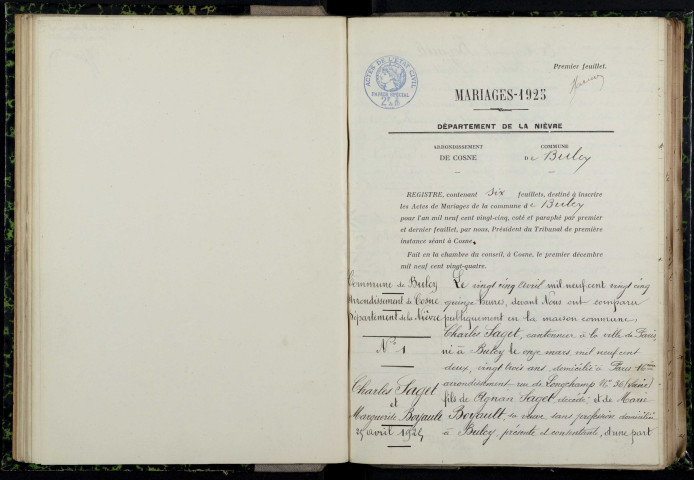 Premier feuillet.
ACTES DE L'ETAT CIVIL
PAPIER SPECIAL
MARIAGES-1925
DÉPARTEMENT DE LA NIÈVRE
ARRONDISSEMENT
DE COSNE
COMMUNE
De Bulcy
REGISTRE, contenant six feuillets, destiné à inscrire
les Actes de Mariages de la commune de Bulcy
pour l'an mil neuf cent vingt-cinq, coté et paraphé par premier
et dernier feuillet, par nous, Président du Tribunal de première
instance séant à Cosne.
Fait en la chambre du conseil, à Cosne, le premier décembre
mil neuf cent vingt-quatre.
Commune de Bulcy
Arrondissement de Cosne
Département de la Nièvre
N° 1
Charles Saget
et
Marguerite Boyault
25 avril 1925
Le vingt cinq avril mil neuf cent vingt cinq
quinze heures, devant Nous ont comparu
publiquement en la maison commune,
Charles Saget, cantonnier à la ville de Paris,
né à Bulcy le onze mars, mil neuf cent
deux, vingt trois ans, domicilié à Paris 16ème
arrondissement rue de Longchamp N° 30 (Seine)
fils de Agnan Saget, décédé, et de Marie
Boyault, sa veuve sans profession domiciliée
à Bulcy, présente et consentante, d'une part